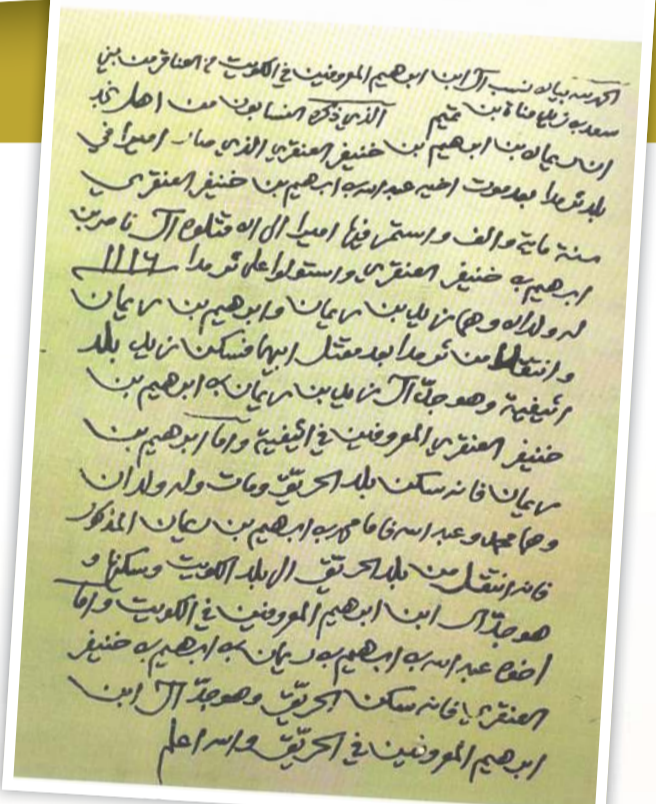 الحمد لله بيان نسب آل ابن ابرهيم المعروفين في الكويت من العناقر من بني
سعد بن زيد مناة بن تميم الذي ذكره النسابون من اهل نجد
ان ريمان بن ابرهيم بن خنيفر العنقري الذي صار اميرا في
بلد ثرمدا بعد موت اخيه عبد الله بن ابرهيم بن خنيفر العنقري
سنة ماية والف واستمر فيها اميرا الى ان قتلوه آل ناصر بن
ابرهيم بن خنيفر العنقري واستولوا على ثرمدا ١١١٦
له ولدان وهما زيد بن ريمان وابرهيم بن ريمان
وانتقلا من ثرمدا بعد مقتل ابيهما فسكن زيد بلد
اثيفية وهو جد آل زيد بن ريمان بن ابرهيم بن
خنيفر العنقري المعروفين في اثيفية واما ابرهيم بن
ريمان فانه سكن بلد الحريق ومات وله ولدان
وهما محمد وعبد الله فاما محمد بن ابرهيم بن ريمان المذكور
فانه انتقل من بلد الحريق الى بلد الكويت وسكنها و
هو جد آل ابن ابرهيم المعروفين في الكويت واما
اخوه عبد الله بن ابرهيم بن ريمان بن ابرهيم بن خنيفر
العنقري فانه سكن الحريق وهو جد آل ابن
ابرهيم المعروفين في الحريق والله اعلم